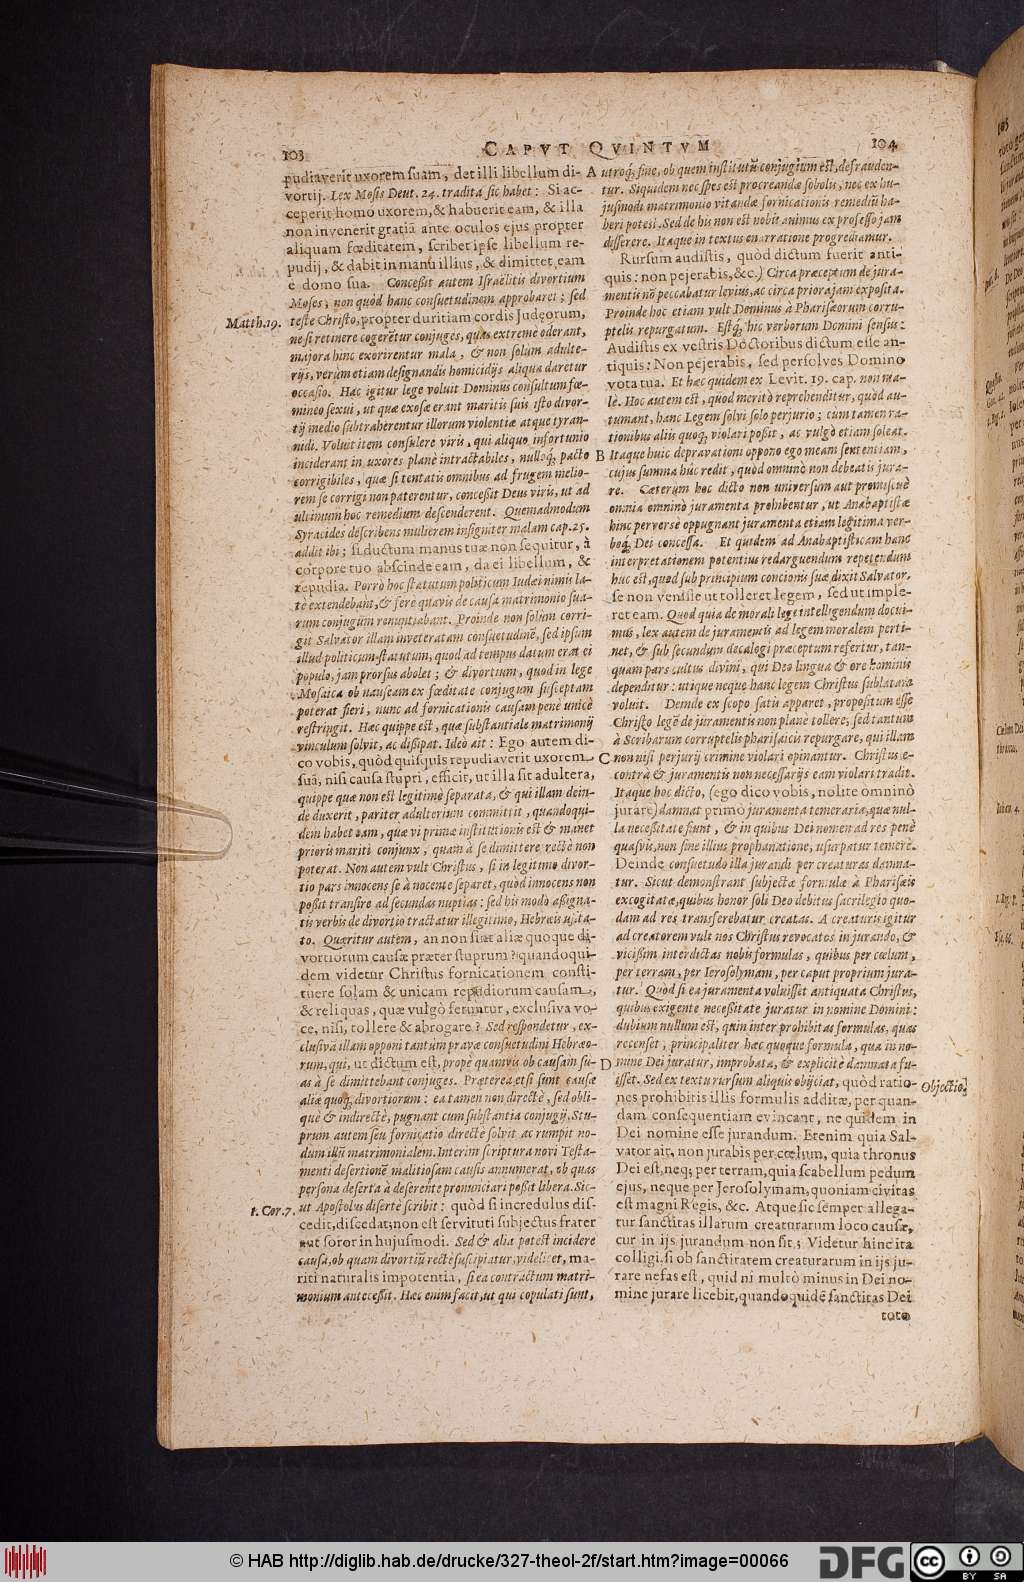 103
CAPVT QVINTVM
104
pudiaverit uxorem suam, det illi libellum di-
vortij. Lex Mosis Deut. 24. tradita sic habet: Si ac-
ceperit homo uxorem, & habuerit eam, & illa
non invenerit gratiā ante oculos ejus propter
aliquam fœditatem, scribet ipse libellum re-
pudij, & dabit in manu illius, & dimittet eam
è domo sua. Conceßit autem Israëlitis divortium
Moses; non quòd hanc consuetudinem approbaret; sed
Matth.19.
teste Christo, propter duritiam cordis Judęorum,
ne si retinere cogerētur conjuges, quas extreme oderant,
majora hinc exorirentur mala, & non solùm adulte-
rijs, verùm etiam designandis homicidijs aliqua daretur
occasio. Hac igitur lege voluit Dominus consultum fœ-
mineo sexui, ut quæ exosæ erant maritis suis isto divor-
tij medio subtraherentur illorum violentiæ atque tyran-
nidi. Voluit item consulere viris, qui aliquo infortunio
inciderant in uxores planè intractabiles, nulloq; pacto
corrigibiles, quæ si tentatis omnibus ad frugem melio-
rem se corrigi non paterentur, conceßit Deus viris, ut ad
ultimum hoc remedium descenderent. Quemadmodum
Syracides describens mulierem insigniter malam cap. 25.
addit ibi; si ductum manus tuæ non sequitur, à
corpore tuo abscinde eam, da ei libellum, &
repudia. Porrò hoc statutum politicum Iudæi nimis la-
tè extendebant, & ferè quavis de causa matrimonio sua-
rum conjugum renuntiabant. Proinde non solùm corri-
git Salvator illam inveteratam consuetudinē, sed ipsum
illud politicum statutum, quod ad tempus datum erat ei
populo, jam prorsus abolet; & divortium, quod in lege
Mosaica ob nauseam ex fœditate conjugum susceptam
poterat fieri, nunc ad fornicationis causam penè unicè
restringit. Hæc quippe est, quæ substantiale matrimonij
vinculum solvit, ac dißipat. Ideò ait: Ego autem di-
co vobis, quòd quisquis repudiaverit uxorem
suā, nisi causa stupri, efficit, ut illa sit adultera,
quippe quæ non est legitimò separata, & qui illam dein-
de duxerit, pariter adulterium committit, quandoqui-
dem habet eam, quæ vi primæ institutionis est & manet
prioris mariti conjunx, quam à se dimittere rectè non
poterat. Non autem vult Christus, si in legitimo divor-
tio pars innocens se à nocente separet, quòd innocens non
poßit transire ad secundas nuptias: sed his modò aßigna-
tis verbis de divortio tractatur illegitimo, Hebræis usita-
to. Quæritur autem, an non sint aliæ quoque di-
vortiorum causæ præter stuprum? quandoqui-
dem videtur Christus fornicationem consti-
tuere solam & unicam repudiorum causam,
& reliquas, quæ vulgò feruntur, exclusiva vo-
ce, nisi, tollere & abrogare? Sed respondetur, ex-
clusivā illam opponi tantùm pravæ consuetudini Hebræo-
rum, qui, ut dictum est, propè quamvis ob causam su-
as à se dimittebant conjuges. Præterea etsi sunt causæ
aliæ quoq; divortiorum: ea tamen non directè, sed obli-
què & indirectè, pugnant cum substantia conjugij. Stu-
prum autem seu fornicatio directè solvit ac rumpit no-
dum illū matrimonialem. Interim scriptura novi Testa-
menti desertionē malitiosam causis annumerat, ob quas
persona deserta à deserente pronunciari poßit libera. Sic-
1. Cor. 7.
ut Apostolus disertè scribit: quòd si incredulus dis-
cedit, discedat; non est servituti subjectus frater
aut soror in hujusmodi. Sed & alia potest incidere
causa, ob quam divortiū rectè suscipiatur, videlicet, ma-
riti naturalis impotentia, si ea contractum matri-
monium anteceßit. Hæc enim facit, ut qui copulati sunt,
A utroq; fine, ob quem institutū conjugium est, defrauden-
tur. Siquidem nec spes est procreandæ sobolis, nec ex hu-
jusmodi matrimonio vitandæ fornicationis remediū ha-
beri potest. Sed de his non est nobis animus ex professo jam
disserere. Itaque in textus enarratione progrediamur.
Rursum audistis, quòd dictum fuerit anti-
quis: non pejerabis, &c.) Circa præceptum de jura-
mentis nō peccabatur levius, ac circa priora jam exposita.
Proinde hoc etiam vult Dominus à Pharisæorum corru-
ptelis repurgatum. Estq; hic verborum Domini sensus:
Audistis ex vestris Doctoribus dictum esse an-
tiquis: Non pejerabis, sed persolves Domino
vota tua. Et hæc quidem ex Levit. 19. cap. non ma-
lè. Hoc autem est, quod meritò reprehenditur, quòd au-
tumant, hanc Legem solvi solo perjurio; cùm tamen ra-
tionibus aliis quoq; violari poßit, ac vulgò etiam soleat.
B Itaque huic depravationi oppono ego meam sententiam,
cujus summa huc redit, quòd omninò non debeatis jura-
re. Cæterùm hoc dicto non universum aut promiscuè
omnia omninò juramenta prohibentur, ut Anabaptistæ
hinc perversè oppugnant juramenta etiam legitima ver-
boq; Dei concessa. Et quidem ad Anabaptisticam hanc
interpretationem potentius redarguendum repetendum
huc est, quod sub principium concionis suæ dixit Salvator,
se non venisse ut tolleret legem, sed ut imple-
ret eam. Quod quia de morali lege intelligendum docui-
mus, lex autem de juramentis ad legem moralem perti-
net, & sub secundum decalogi præceptum refertur, tan-
quam pars cultus divini, qui Deo lingua & ore hominis
dependitur: utique neque hanc legem Christus sublatam
voluit. Deinde ex scopo satis apparet, propositum esse
Christo legē de juramentis non planè tollere; sed tantùm
à Scribarum corruptelis pharisaicis repurgare, qui illam
C non nisi perjurij crimine violari opinantur. Christus e-
contrà & juramentis non necessarijs eam violari tradit.
Itaque hoc dicto, (ego dico vobis, nolite omninò
jurare) damnat primò juramenta temeraria, quæ nul-
la neceßitate fiunt, & in quibus Dei nomen ad res penè
quasvis, non sine illius prophanatione, usurpatur temerè.
Deinde consuetudo illa jurandi per creaturas damna-
tur. Sicut demonstrant subjectæ formulæ à Pharisæis
excogitatæ, quibus honor soli Deo debitus sacrilegio quo-
dam ad res transferebatur creatas. A creaturis igitur
ad creatorem vult nos Christus revocatos in jurando, &
vicißim interdictas nobis formulas, quibus per cœlum,
per terram, per Ierosolymam, per caput proprium jura-
tur. Quòd si ea juramenta voluisset antiquata Christus,
quibus exigente neceßitate juratur in nomine Domini:
dubium nullum est, quin inter prohibitas formulas, quas
recenset, principaliter hæc quoque formula, qua in no-
D mine Dei juratur, improbata, & explicitè damnata fu-
isset. Sed ex textu rursum aliquis objiciat, quòd ratio-
Objectio.
nes prohibitis illis formulis additæ, per quan-
dam consequentiam evincant, ne quidem in
Dei nomine esse jurandum. Etenim quia Sal-
vator ait, non jurabis per cœlum, quia thronus
Dei est, neq; per terram, quia scabellum pedum
ejus, neque per Jerosolymam, quoniam civitas
est magni Regis, &c. Atque sic semper allega-
tur sanctitas illarum creaturarum loco causæ,
cur in ijs jurandum non sit; Videtur hinc ita
colligi. si ob sanctitatem creaturarum in ijs ju-
rare nefas est, quid ni multò minus in Dei no-
mine jurare licebit, quandoquidē sanctitas Dei
toto
© HAB http://diglib.hab.de/drucke/327-theol-2f/start.htm?image=00066
DFG
cc BY SA